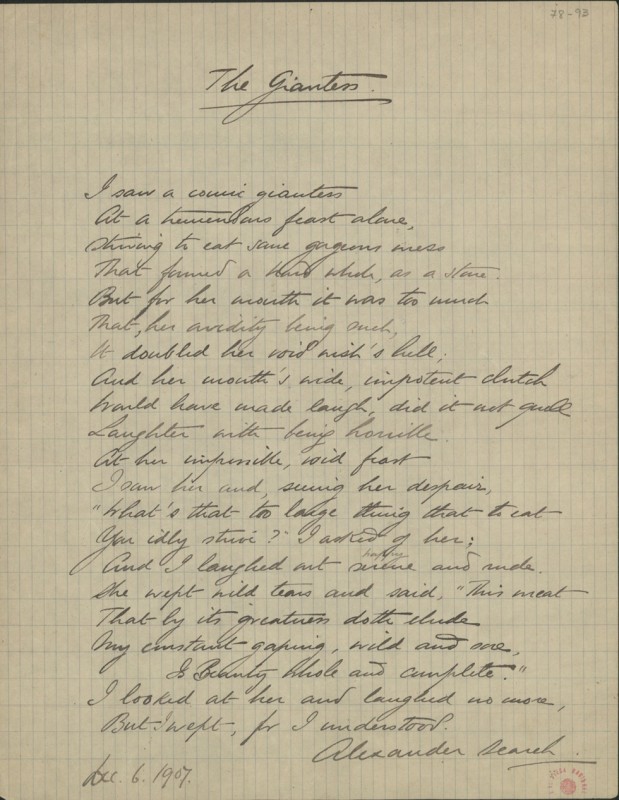 78-93
The Giantess.
I saw a comic giantess
At a tremendous feast alone,
Striving to eat some gorgeous mess
That formed a hard whole, as a stone.
But for her mouth it was too much
That, her avidity being such,
It doubled her void wish's hell;
And her mouth's wide, impotent clutch
Would have made laugh, did it not quell
Laughter with being horrible.
At her impossible, void feast
I saw her and, seeing her despair,
"What's that too large thing that to eat
You idly strive?" I asked of her;
happy
And I laughed out serene and rude.
She wept wild tears and said, "This meat
That by its greatness doth elude
My constant gaping, wild and sore,
Is Beauty whole and complete."
I looked at her and laughed no more,
But I wept, for I understood.
Alexander Search.
Dec. 6. 1907.